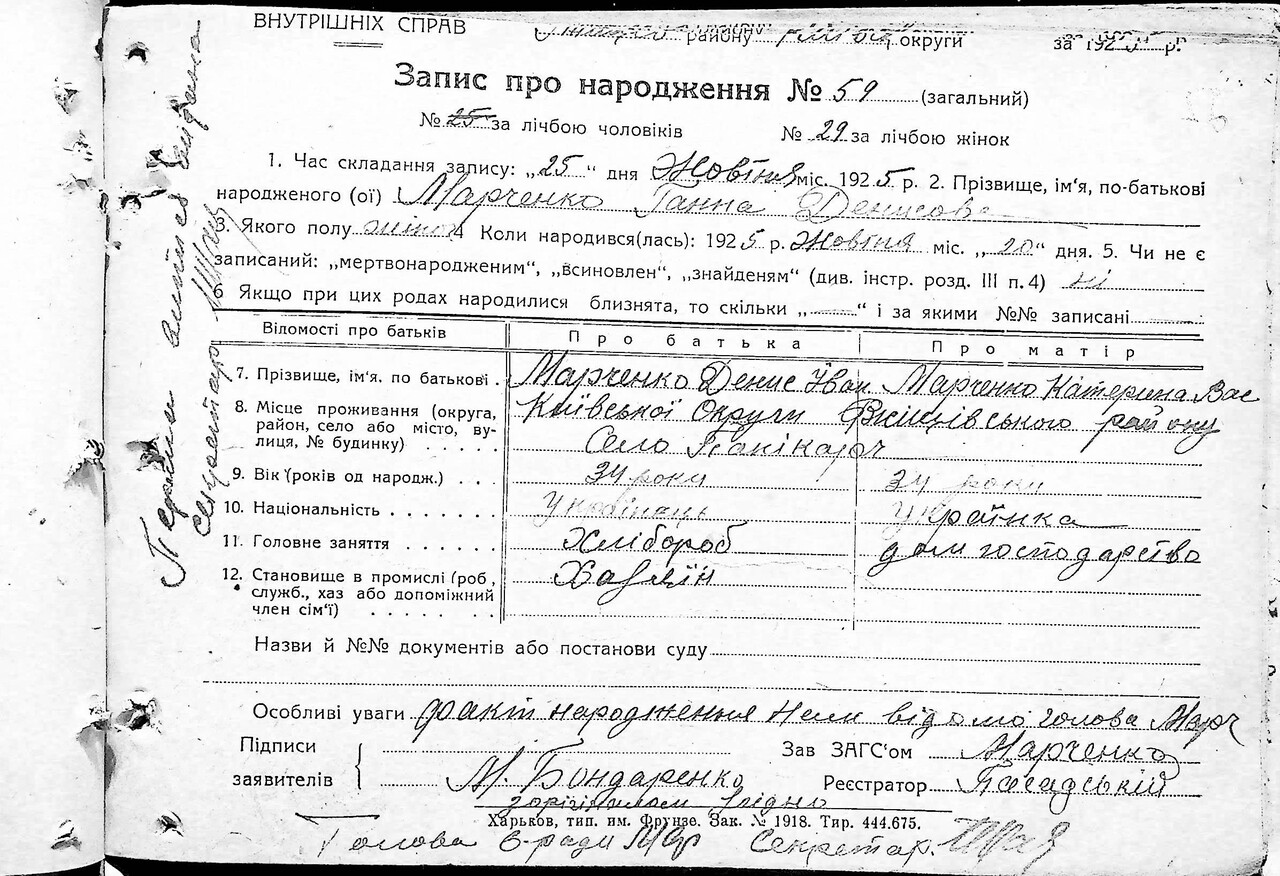 ВНУТРІШНІХ СПРАВ
району округи за 1925 р.
Запис про народження № 59 (загальний)
№ 25 за лічбою чоловіків № 29 за лічбою жінок
1. Час складання запису: „25“ дня Жовтня міс. 1925 р. 2. Прізвище, ім'я, по-батькові
народженого (ої) Марченко Ганна Денисова
3. Якого полу жіноч 4 Коли народився(лась): 1925 р. Жовтня міс. „20“ дня. 5. Чи не є
записаний: „мертвонародженим“, „всиновлен“, „знайденям“ (див. інстр. розд. III п. 4) ні
6 Якщо при цих родах народилися близнята, то скільки „ “ і за якими №№ записані
Відомості про батьків Про батька Про матір
7. Прізвище, ім'я. по батькові Марченко Денис Іван Марченко Катерина Вас
8. Місце проживання (округа, район, село або місто, вулиця, № будинку) Київської Округи району
Село Панікарч
9. Вік (років од народж.) 34 роки 34 роки
10. Національність Українець Українка
11. Головне заняття Хлібороб дом господарство
12. Становище в промислі (роб, служб., хаз або допоміжний член сім'ї) Хазяїн
Назви й №№ документів або постанови суду
Особливі уваги факт народження нам відомо голова Марч
Підписи заявителів М. Бондаренко
Зав ЗАГС'ом Марченко
Реєстратор Посадський
з орігіналом згідно
Харьков, тип. им. Фрунзе. Зак. № 1918. Тир. 444.675.
Голова с-ради Мар Секретар